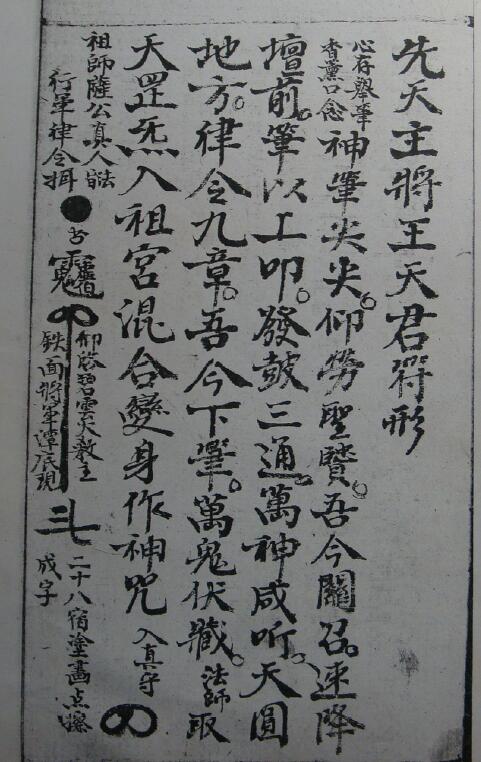 先天主將王天君符形
心存舉筆
香薰口念
神筆尖尖。仰勞聖賢。吾今關召。速降
壇前。筆以工叩。發鼓三通。萬神咸听。天圓
地方。律令九章。吾今下筆。萬鬼伏藏。法師取
天罡炁入祖宮混合變身作神咒 入真守
祖師薩公真人
行筆律令
仰啓碧雲大教主
鉄面將軍潭底現
二十八宿塗畵点
成字